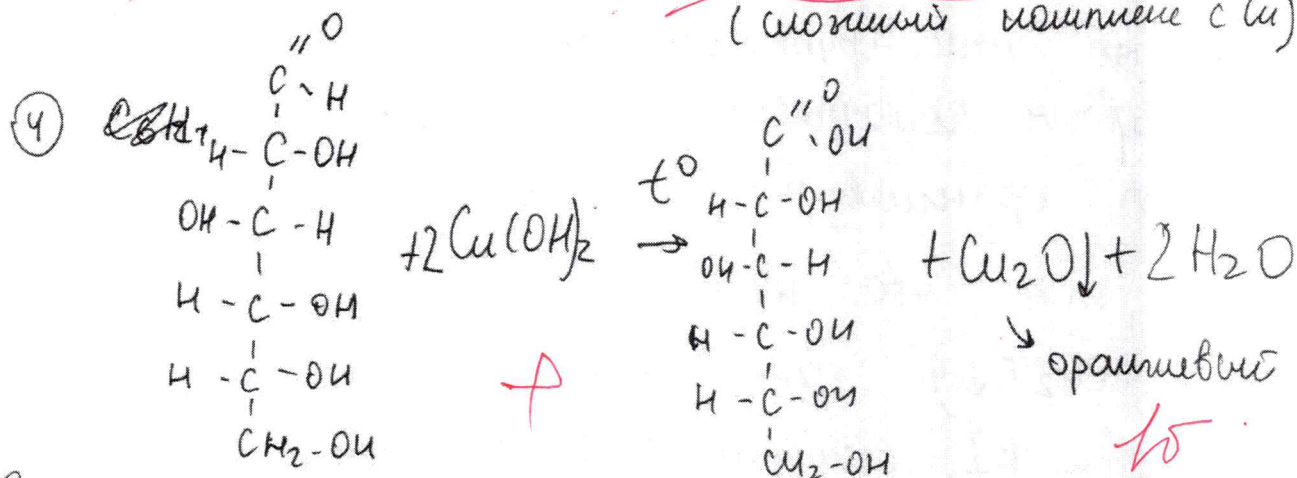 (сложный комплекс с Cu)
④
C=O
H
H-C-OH
OH-C-H
H-C-OH
H-C-OH
CH₂-OH
+2Cu(OH)₂
t°
→
C=O
OH
H-C-OH
OH-C-H
H-C-OH
H-C-OH
CH₂-OH
+Cu₂O↓+2H₂O
оранжевый
+
1б